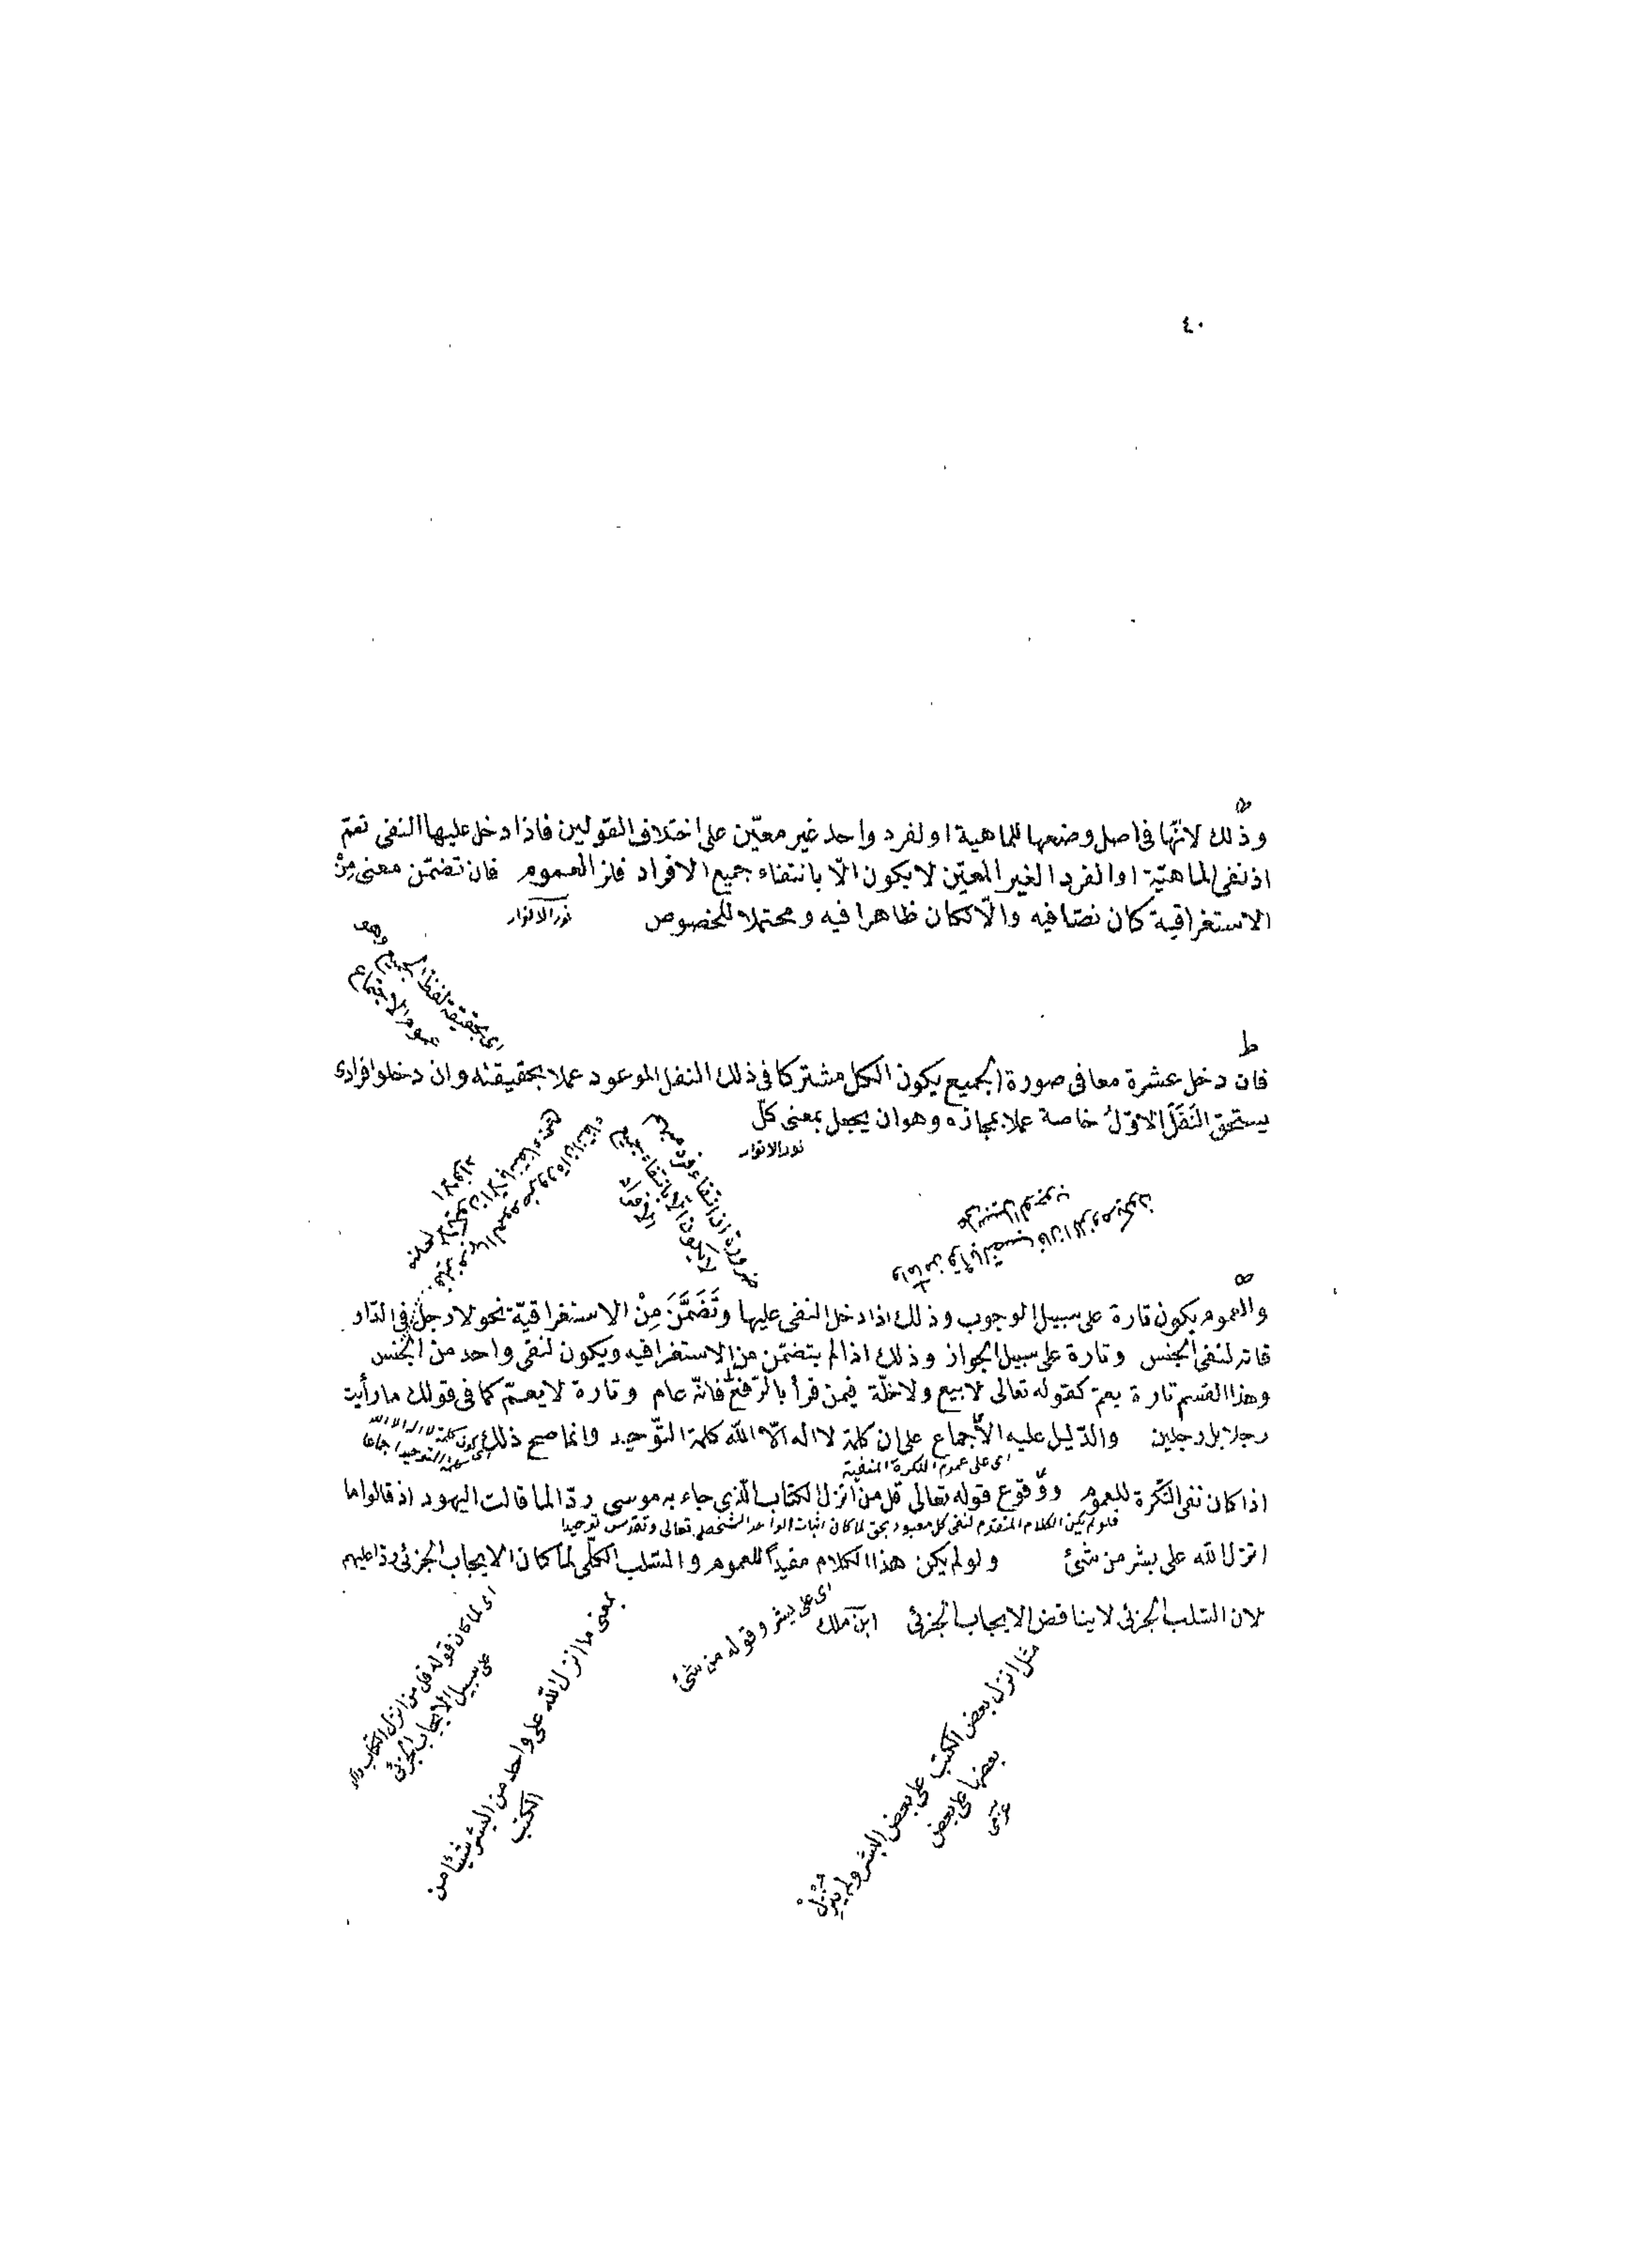 ٤٠
وذلك لانّها فى اصل وضعها للماهية او لفرد واحد غير معيّن على اختلاف القولين فاذا دخل عليها النفى تعمّ
اذ نفى الماهيّة او الفرد الغير المعيّن لا يكون الّا بانتفاء جميع الافراد فلزم العموم فان تضمّن معنى مِنْ
الاستغراقية كان نصّا فيه والّا لكان ظاهرا فيه ومحتملا للخصوص نور الانوار
اى بحقيقة لفظ الجميع وهو
عموم الاجتماع
ط
فان دخل عشرة معا فى صورة الجميع يكون الكل مشتركا فى ذلك النفل الموعود عملا بحقيقته وان دخلوا فرادى
يستحق النَفَلَ الاوّلُ خاصة عملا بمجازه وهو ان يجعل بمعنى كلّ
نور الانوار
ضرورة ان انتفاء فرد مبهم
لا يكون الا بانتفاء جميع
الافراد
والعموم يكون تارة على سبيل الوجوب وذلك اذا دخل النفى عليها وتَضَمَّنَ مِنْ الاستغراقيّة نحو لا رجل فى الدّار
فانه لنفى الجنس وتارة على سبيل الجواز وذلك اذا لم يتضمّن من الاستغراقيه ويكون لنفى واحد من الجنس
وهذا القسم تارة يعمّ كقوله تعالى لا بيع ولا خلّة فيمن قرأ بالرّفع فانّه عام وتارة لا يعمّ كما فى قولك ما رأيت
رجلا بل رجلين والدّليل عليه الاجماع على ان كلمة لا اله الّا الله كلمة التّوحيد وانما صح ذلك
اى كون كلمة لا اله الا الله
كلمة التوحيد اجماعا
اى على عموم النكرة المنفية
اذا كان نفى النّكرة للعموم ووقوع قوله تعالى قل من انزل الكتاب الّذى جاء به موسى ردّا لما قالت اليهود اذ قالوا ما
فلو لم يكن الكلام المتقدم لنفى كل معبود بحق لما كان اثبات الواحد الشخصى تعالى وتقدس توحيدا
انزل الله على بشر من شئ ولو لم يكن هذا الكلام مفيدًا للعموم والسّلب الكلّى لما كان الايجاب الجزئى ردّا عليهم
لان السّلب الجزئى لا يناقض الايجاب الجزئى ابن ملك
اى على بشر وقوله من شئ
مثل انزل بعض الكتب على بعض البشر ولم ينزل
بعضها على بعض
عزمى
بمعنى ما انزل الله على واحد من البشر شيئا من
الكتب
اى لما كان قوله قل من انزل الكتاب
على سبيل الايجاب الجزئى